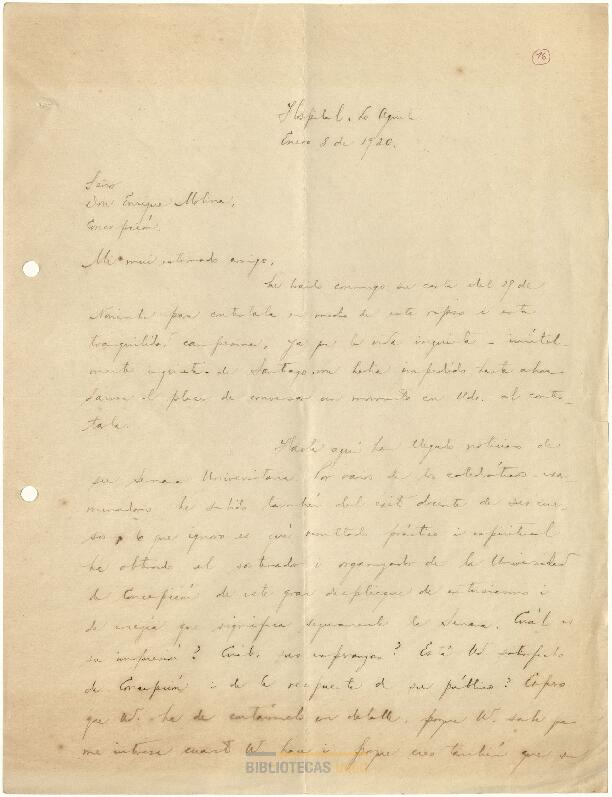 16
Hospital. Lo Aguila
Enero 8 de 1920.
Señor
Don Enrique Molina,
Concepción.
Mi mui estimado amigo,
He traido conmigo su carta del 29 de
Noviembre para contestarla en medio de este reposo i esta
tranquilidad campesina, ya que la vida inquieta - inútil-
mente inquieta - de Santiago me habia impedido hasta ahora
darme el placer de conversar un momento con Ud. al contes-
tarla.
Hasta aquí han llegado noticias de
su Semana Universitaria. Por varios de los catedráticos exa-
minadores he sabido también del éxito docente de sus cur-
sos, lo que ignoro es qué resultado práctico i espiritual
ha obtenido el sostenedor i organizador de la Universidad
de Concepción de este gran despliegue de entusiasmo i
de energía que significa seguramente la Semana. Cuál es
su impresión? Cuáles sus esperanzas? Está Ud satisfecho
de Concepción i de la respuesta de su público? Espero
que Ud. ha de contármelo en detalle, porque Ud. sabe que
me interesa cuanto Ud hace i porque creo también que su
BIBLIOTECAS UDEC